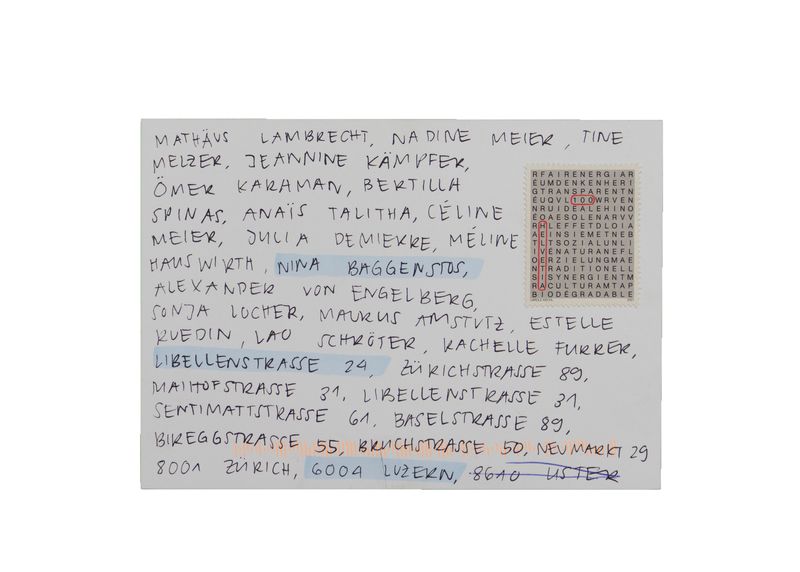 MATHÄUS LAMBRECHT, NADINE MEIER, TINE
MELZER, JEANNINE KÄMPFER,
ÖMER KARAMAN, BERTILLA
SPINAS, ANAÏS TALITHA, CÉLINE
MEIER, JULIA DEMIERRE, MÉLINE
HAUSWIRTH, NINA BAGGENSTOS,
ALEXANDER VON ENGELBERG,
SONJA LOCHER, MAURUS AMSTUTZ, ESTELLE
RUEDIN, LAO SCHRÖTER, RACHELLE FURRER,
LIBELLENSTRASSE 24, ZÜRICHSTRASSE 89,
MAIHOFSTRASSE 31, LIBELLENSTRASSE 31,
SENTIMATTSTRASSE 61, BASELSTRASSE 89,
BIREGGSTRASSE 55, BRUCHSTRASSE 50, NEUMARKT 29
8001 ZÜRICH, 6004 LUZERN, 8610 USTER
RFAIRENERGIAR
EUMDENKENHERI
GTRANSPARENTN
ÉUQVL100WRVEN
NRUIDEALEHINO
EOAESOLENARVV
RHLEFFETDLOIA
AEINSIEMETNEB
TLTSOZIALUNLI
IVÉNATURANEFL
OERZIELUNGMAE
NTRADITIONELL
SISYNERGIENTM
RACULTURAMTAP
BIODÉGRADABLE